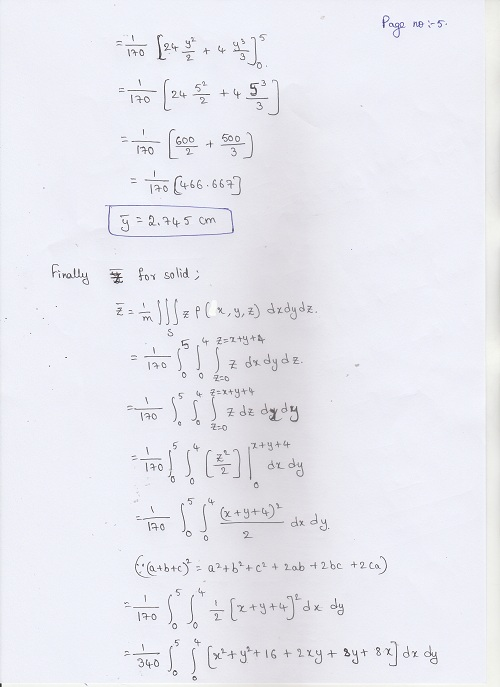 Page no :- 5.
= 1/170 [24 y²/2 + 4 y³/3]₀⁵.
= 1/170 [24 5²/2 + 4 5³/3]
= 1/170 [600/2 + 500/3]
= 1/170 [466.667]
ȳ = 2.745 cm
Finally z̄ for solid ;
z̄ = 1/m ∭_S z ρ(x, y, z) dx dy dz.
= 1/170 ∫₀⁵ ∫₀⁴ ∫_{z=0}^{z=x+y+4} z dx dy dz.
= 1/170 ∫₀⁵ ∫₀⁴ ∫_{z=0}^{z=x+y+4} z dz dx dy
= 1/170 ∫₀⁵ ∫₀⁴ [z²/2] |₀^{x+y+4} dx dy
= 1/170 ∫₀⁵ ∫₀⁴ (x+y+4)²/2 dx dy.
(∵ (a+b+c)² = a²+b²+c² + 2ab + 2bc + 2ca)
= 1/170 ∫₀⁵ ∫₀⁴ 1/2 [x+y+4]² dx dy
= 1/340 ∫₀⁵ ∫₀⁴ [x²+y²+16 + 2xy + 8y + 8x] dx dy